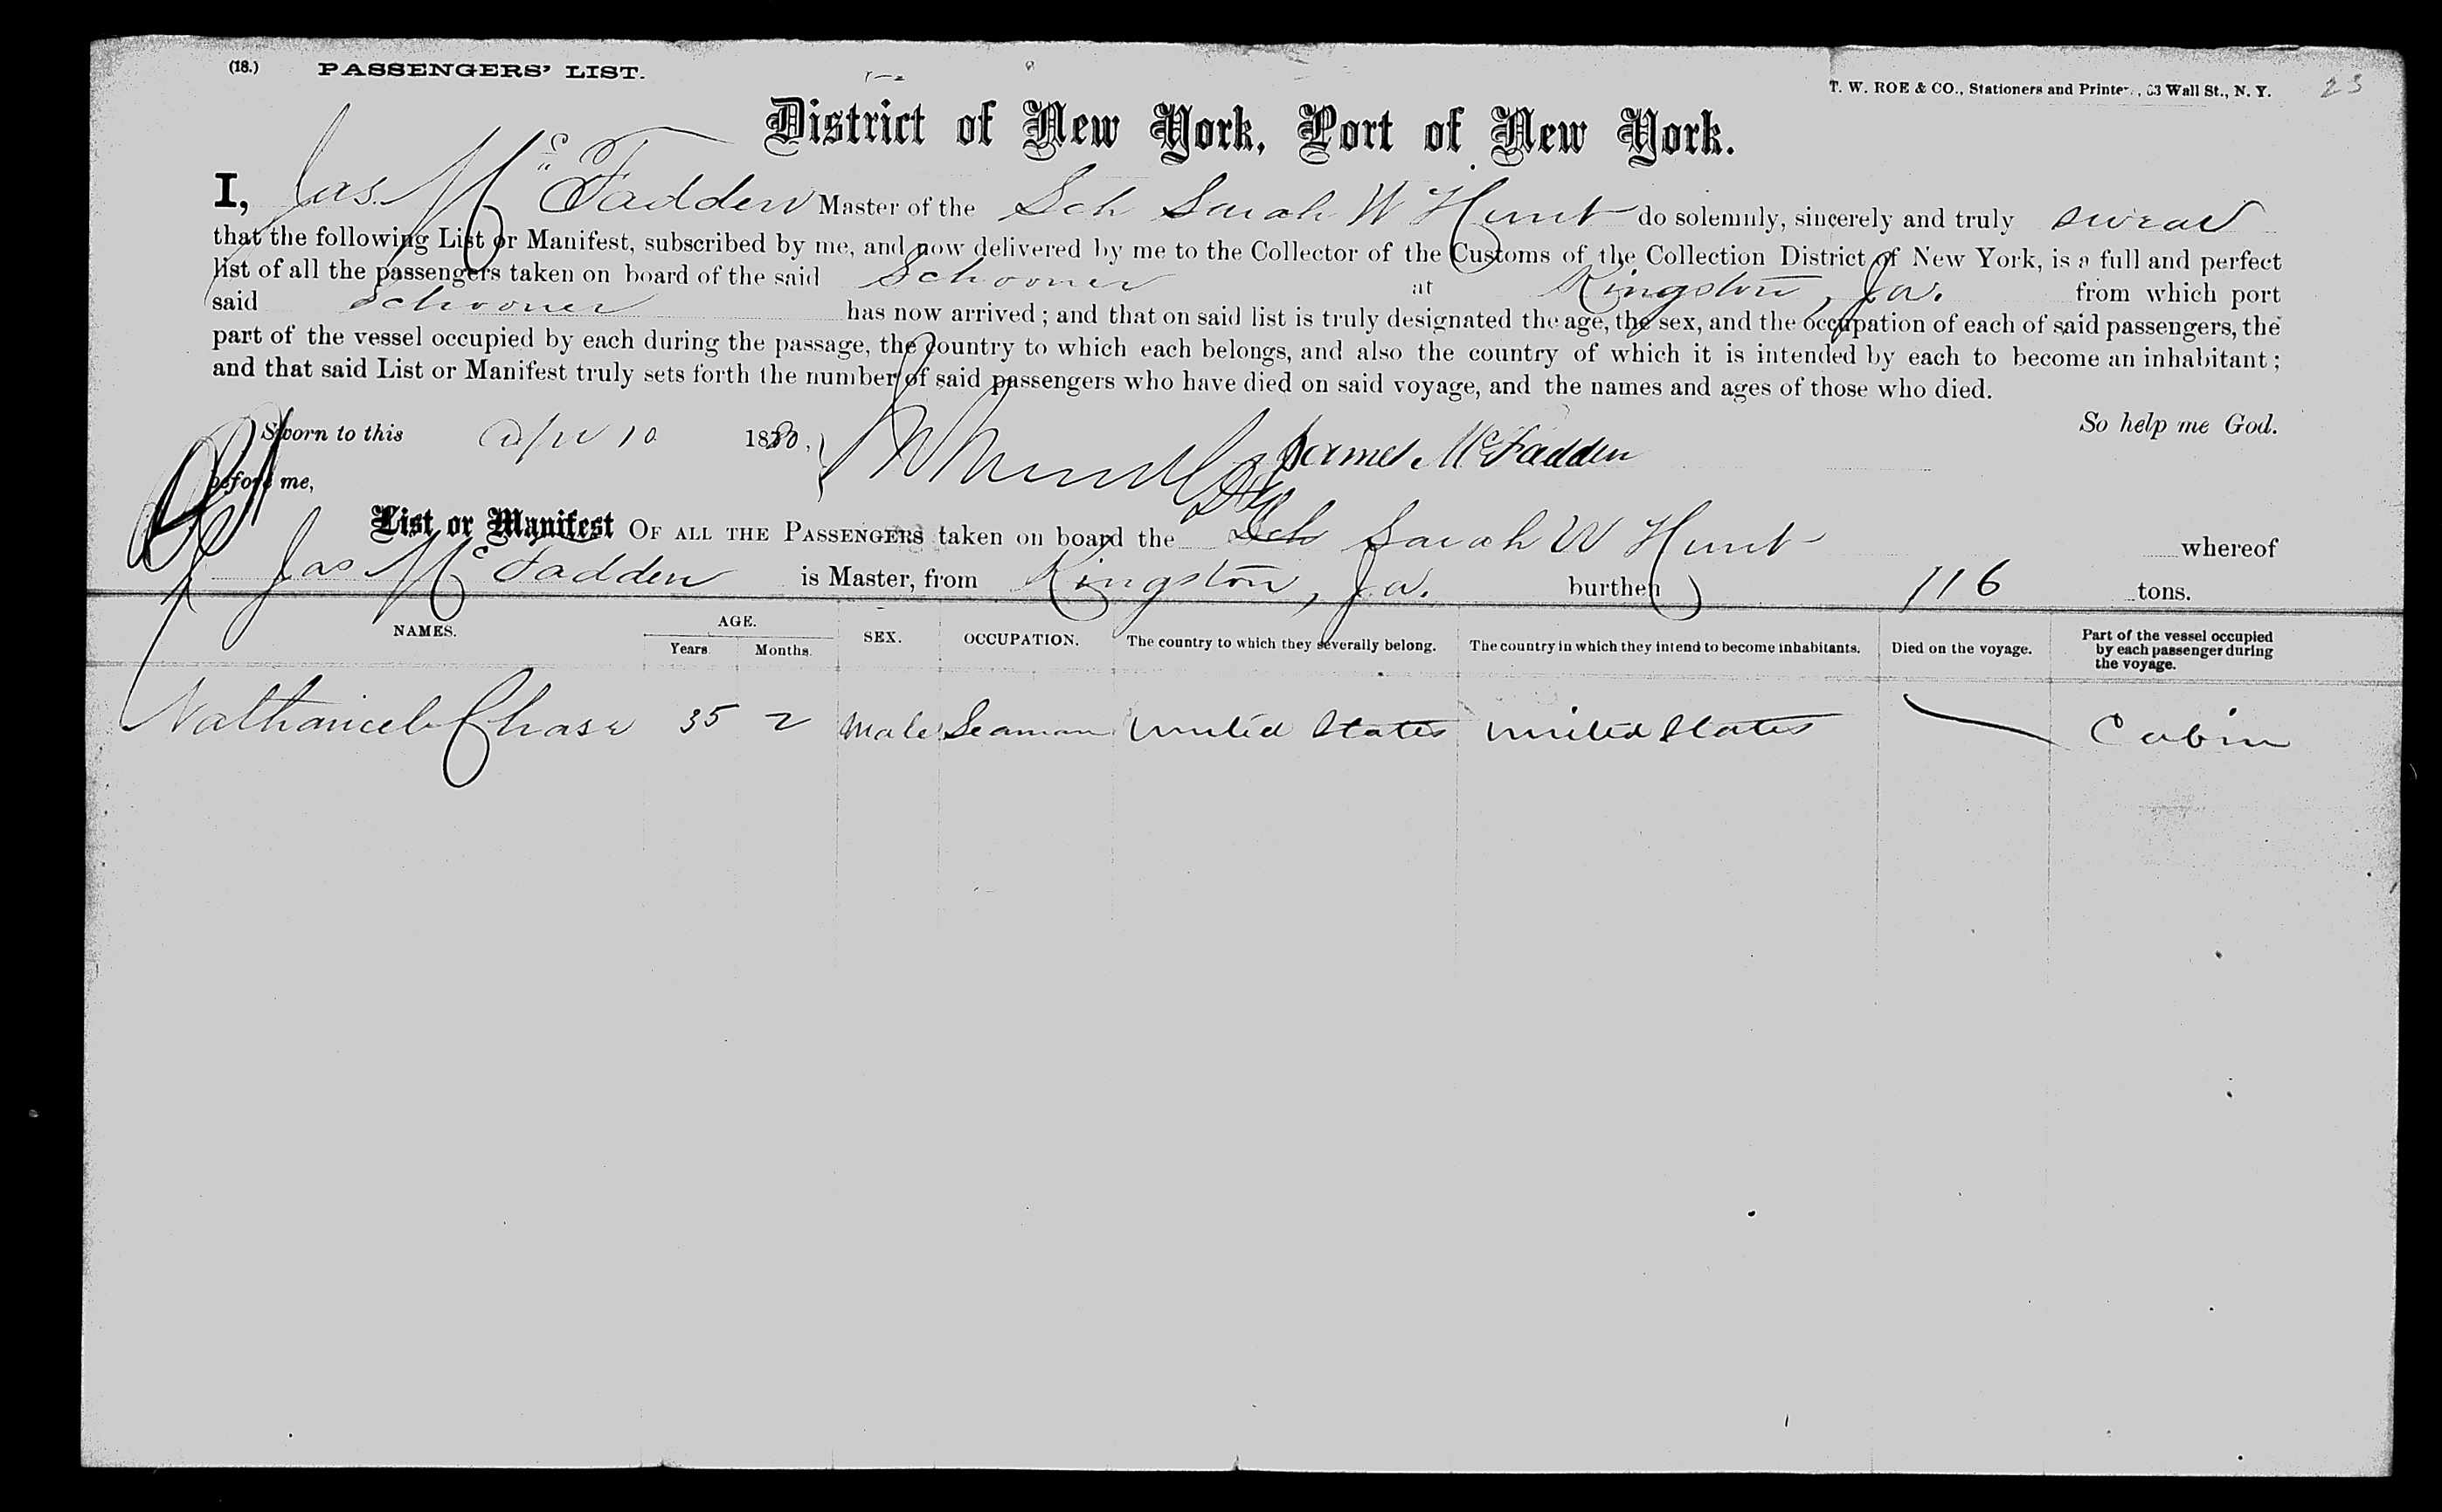 (18.) PASSENGERS' LIST.
T. W. ROE & CO., Stationers and Printe , 63 Wall St., N. Y. 23
District of New York, Port of New York.
I, Jas. Mc Fadden Master of the Sch Sarah W Hunt do solemnly, sincerely and truly swear
that the following List or Manifest, subscribed by me, and now delivered by me to the Collector of the Customs of the Collection District of New York, is a full and perfect
list of all the passengers taken on board of the said Schooner at Kingston, Ja. from which port
said Schooner has now arrived; and that on said list is truly designated the age, the sex, and the occupation of each of said passengers, the
part of the vessel occupied by each during the passage, the country to which each belongs, and also the country of which it is intended by each to become an inhabitant;
and that said List or Manifest truly sets forth the number of said passengers who have died on said voyage, and the names and ages of those who died.
So help me God.
Sworn to this Apl 10 1880,
James McFadden
before me,
List or Manifest OF ALL THE PASSENGERS taken on board the Sch Sarah W Hunt whereof
Jas Mc Fadden is Master, from Kingston, Ja. burthen 116 tons.
NAMES. AGE. SEX. OCCUPATION. The country to which they severally belong. The country in which they intend to become inhabitants. Died on the voyage. Part of the vessel occupied
Years. Months. by each passenger during
the voyage.
Nathaniel Chase 35 2 Male Seaman United States United States Cabin